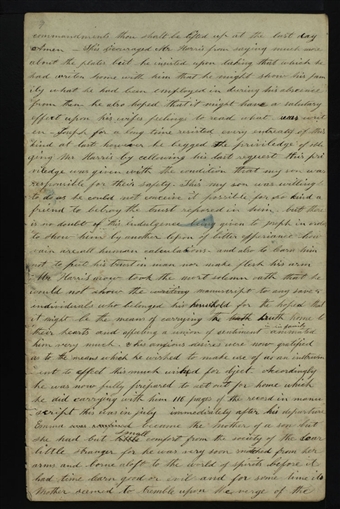 commandments thou shall be lifted up at the last day
Amen — This discouraged Mr Harris from saying much more
about the plates but he insisted upon taking that which he
had writen home with him that he might show his fam
ily what he had been employed in during his absence
from them he also hoped that it might have a salutary
effect upon his wifes feelings to read what was writ
en Joseph for a long time resisted every entreaty of this
kind at last however he begged the priviledge of obli
ging Mr Harris by allowing his last request this pri
viledge was given with the condition that my son was
responsible for their safety This my son was willing
to do as he could not conceive it possible for so kind a
friend to betray the trust reposed in him but there
is no doubt of this indulgence being given to Joseph in order
to show him by another lesson of bitter experience how
vain are all human calculations and also to learn him
not to put his trust in man nor make flesh his arm
Mr Harris now took the most solemn oath that he
would not show the manuscript to any save
individuals who belonged his household for he hoped that
it might be the means of carrying the truth home to
their hearts and effecting a union of sentiment animated
him very much his anxious desires were now gratified
as to the means which he wished to make use of as an instrum
ent to effect this much wished for object Accordingly
he was now fully prepared to set out for home which
he did carrying with him 116 pages of the record in manu
script this was in July immediately after his departure
Emma became the mother of a son but
she had but small comfort from the society of the dear
little stranger for he was very soon snatched from her
arms and borne aloft to the world of spirits before it
had time learn good or evil and for some time its
Mother seemed to tremble upon the verge of the